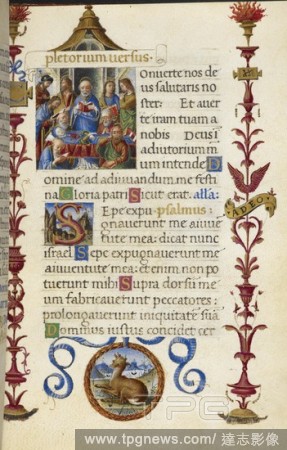 pletorium versus·
Onverte nos de
us salutaris no
ster: Et aver
te iram tuam a
nobis Deus i
adiutorium m
um intende D
omine ad adiuvandum me festi
na Gloria patri Sicut erat. alla:
SEpe expu psalmus:
gnaverunt me a iuve
tute mea: dicat nunc
israel Sepe expugnaverunt me
a iuventute mea: et enim non po
tuerunt mihi Supra dorsum me
um fabricaverunt peccatores:
prolongaverunt iniquitate suā
Dominus iustus concidet cer
TPG
www.tpgnews.com/達志影像